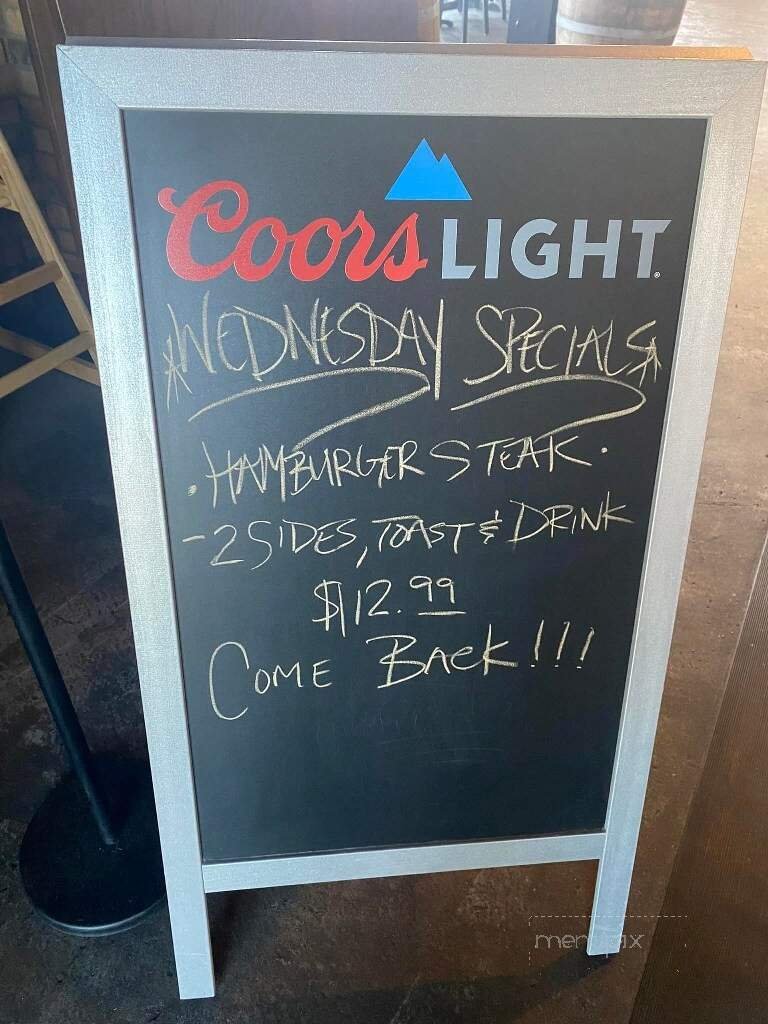 Coors LIGHT
*WEDNESDAY SPECIALS*
• HAMBURGER STEAK •
- 2 SIDES, TOAST & DRINK
$12.99
COME BACK!!!
menupix